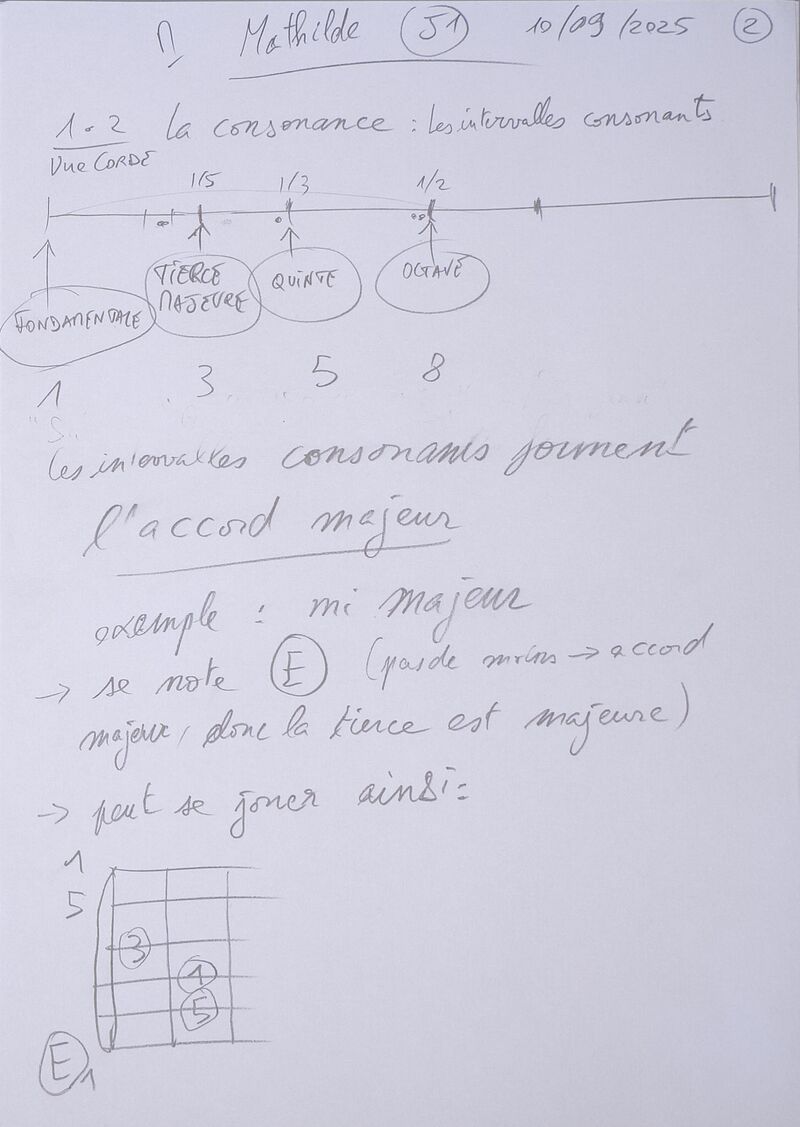 Mathilde J1 10/09/2025 2
1.2 La consonance : les intervalles consonants
Vue CORDE
1/5 1/3 1/2
FONDAMENTALE TIERCE MAJEURE QUINTE OCTAVE
1 3 5 8
Les intervalles consonants forment
l'accord majeur
exemple : mi majeur
→ se note E (pas de moins → accord
majeur, donc la tierce est majeure)
→ peut se jouer ainsi :
1
5
3
1
5
E 1